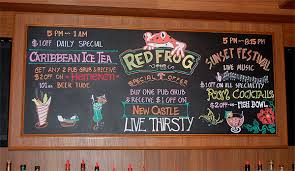 5 PM - 1 AM
$1 OFF DAILY SPECIAL
CARIBBEAN ICE TEA
GET ANY 2 PUB GRUB & RECEIVE
$2 OFF ON Heineken
101oz BEER TUBE
RED FROG
SPECIAL OFFER
BUY ONE PUB GRUB
& RECEIVE $1 OFF ON
NEW CASTLE
LIVE THIRSTY
5 PM - 8:15 PM
SUNSET FESTIVAL
LIVE MUSIC
$1 OFF ON ALL SPECIALTY
COCKTAILS
$2 OFF - FISH BOWL